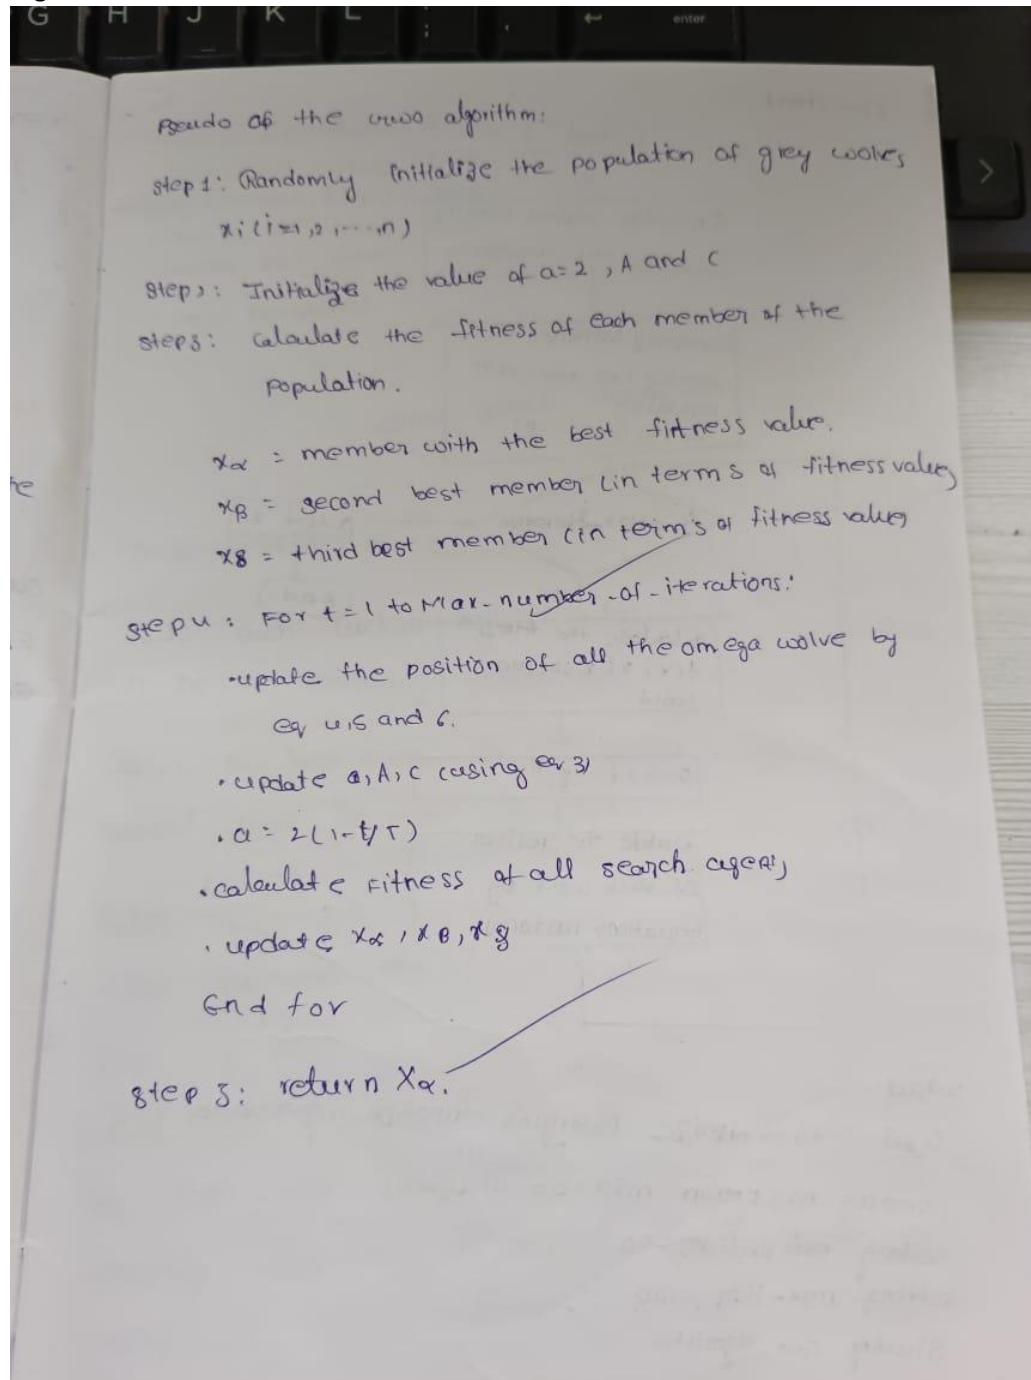 G H J K L : ; enter
>
Pseudo of the GWO algorithm:
step 1: Randomly initialize the population of grey wolves
xi (i=1,2,...,n)
step 2: Initialize the value of a=2, A and C
step 3: calculate the fitness of each member of the
population.
xα = member with the best fitness value.
xβ = second best member (in terms of fitness value)
xδ = third best member (in terms of fitness value)
step 4: For t=1 to Max-number-of-iterations:
•update the position of all the omega wolve by
eq 4,5 and 6.
•update a, A, C (using eq 3)
•a = 2(1-t/T)
•calculate Fitness of all search agents
•update xα, xβ, xδ
End for
step 5: return Xα.